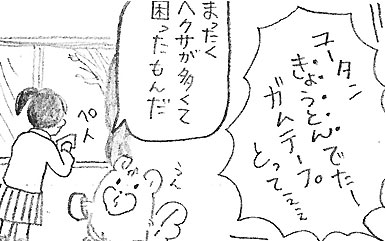 ユータン
きょうとんでたー
ガムテープ
とってェェ
まったく
ヘクサが多くて
困ったもんだ
うん
ペト